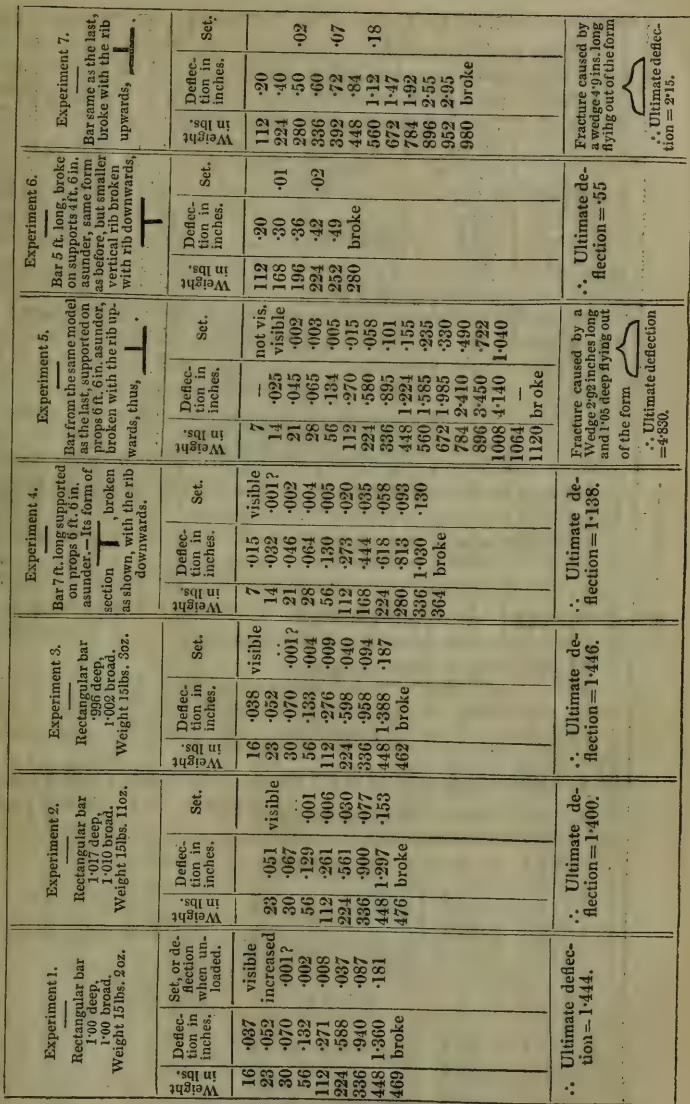 Experiment 1.
Rectangular bar
1·00 deep,
1·00 broad.
Weight 15lbs. 2oz.
Weight in lbs. Deflection in inches. Set, or deflection when unloaded.
16 ·037 visible
23 ·052 increased
30 ·070 ·001?
56 ·132 ·002
112 ·271 ·008
224 ·588 ·037
336 ·940 ·087
448 1·360 ·181
469 broke
∴ Ultimate deflec-
tion = 1·444.
Experiment 2.
Rectangular bar
1·017 deep,
1·010 broad.
Weight 15lbs. 11oz.
Weight in lbs. Deflec-tion in inches. Set.
23 ·051 visible
30 ·067 ..
56 ·129 ·001
112 ·261 ·006
224 ·561 ·030
336 ·900 ·077
448 1·297 ·153
476 broke
∴ Ultimate de-
flection = 1·400.
Experiment 3.
Rectangular bar
·996 deep,
1·002 broad.
Weight 15lbs. 3oz.
Weight in lbs. Deflec-tion in inches. Set.
16 ·038 visible
23 ·052 ..
30 ·070 ·001?
56 ·133 ·004
112 ·276 ·009
224 ·598 ·040
336 ·958 ·094
448 1·388 ·187
462 broke
∴ Ultimate de-
flection = 1·446.
Experiment 4.
Bar 7 ft. long supported
on props 6 ft. 6 in.
asunder.—Its form of
section , broken
as shown, with the rib
downwards.
Weight in lbs. Deflec-tion in inches. Set.
7 ·015 visible
14 ·032 ·001?
21 ·046 ·002
28 ·064 ·004
56 ·130 ·005
112 ·273 ·020
168 ·444 ·035
224 ·618 ·058
280 ·813 ·093
336 1·030 ·130
364 broke
∴ Ultimate de-
flection = 1·138.
Experiment 5.
Bar from the same model
as the last, supported on
props 6 ft. 6 in. asunder,
broken with the rib up-
wards, thus,
Weight in lbs. Deflection in inches. Set.
7 — not vis.
14 ·025 visible
21 ·045 ·002
28 ·065 ·003
56 ·134 ·005
112 ·270 ·015
224 ·580 ·058
336 ·895 ·101
448 1·224 ·155
560 1·585 ·235
672 1·985 ·330
784 2·410 ·490
896 3·450 ·722
1008 4·140 1·040
1064 —
1120 broke
Fracture caused by a
Wedge 2·92 inches long
and 1·05 deep flying out
of the form
∴ Ultimate deflection
=4·830.
Experiment 6.
Bar 5 ft. long, broke
on supports 4 ft. 6 in.
asunder, same form
as before, but smaller
vertical rib broken
with rib downwards,
Weight in lbs. Deflec-tion in inches. Set.
112 ·20
168 ·30
196 ·36 ·01
224 ·42
252 ·49 ·02
280 broke
∴ Ultimate de-
flection = ·55
Experiment 7.
Bar same as the last,
broke with the rib
upwards,
Weight in lbs. Deflec-tion in inches. Set.
112 ·20
224 ·40
280 ·50
336 ·60 ·02
392 ·72
448 ·84
560 1·12 ·07
672 1·47
784 1·92
896 2·55 ·18
952 2·95
980 broke
Fracture caused by
a wedge 4·9 ins. long
flying out of the form
∴ Ultimate deflec-
tion = 2·15.